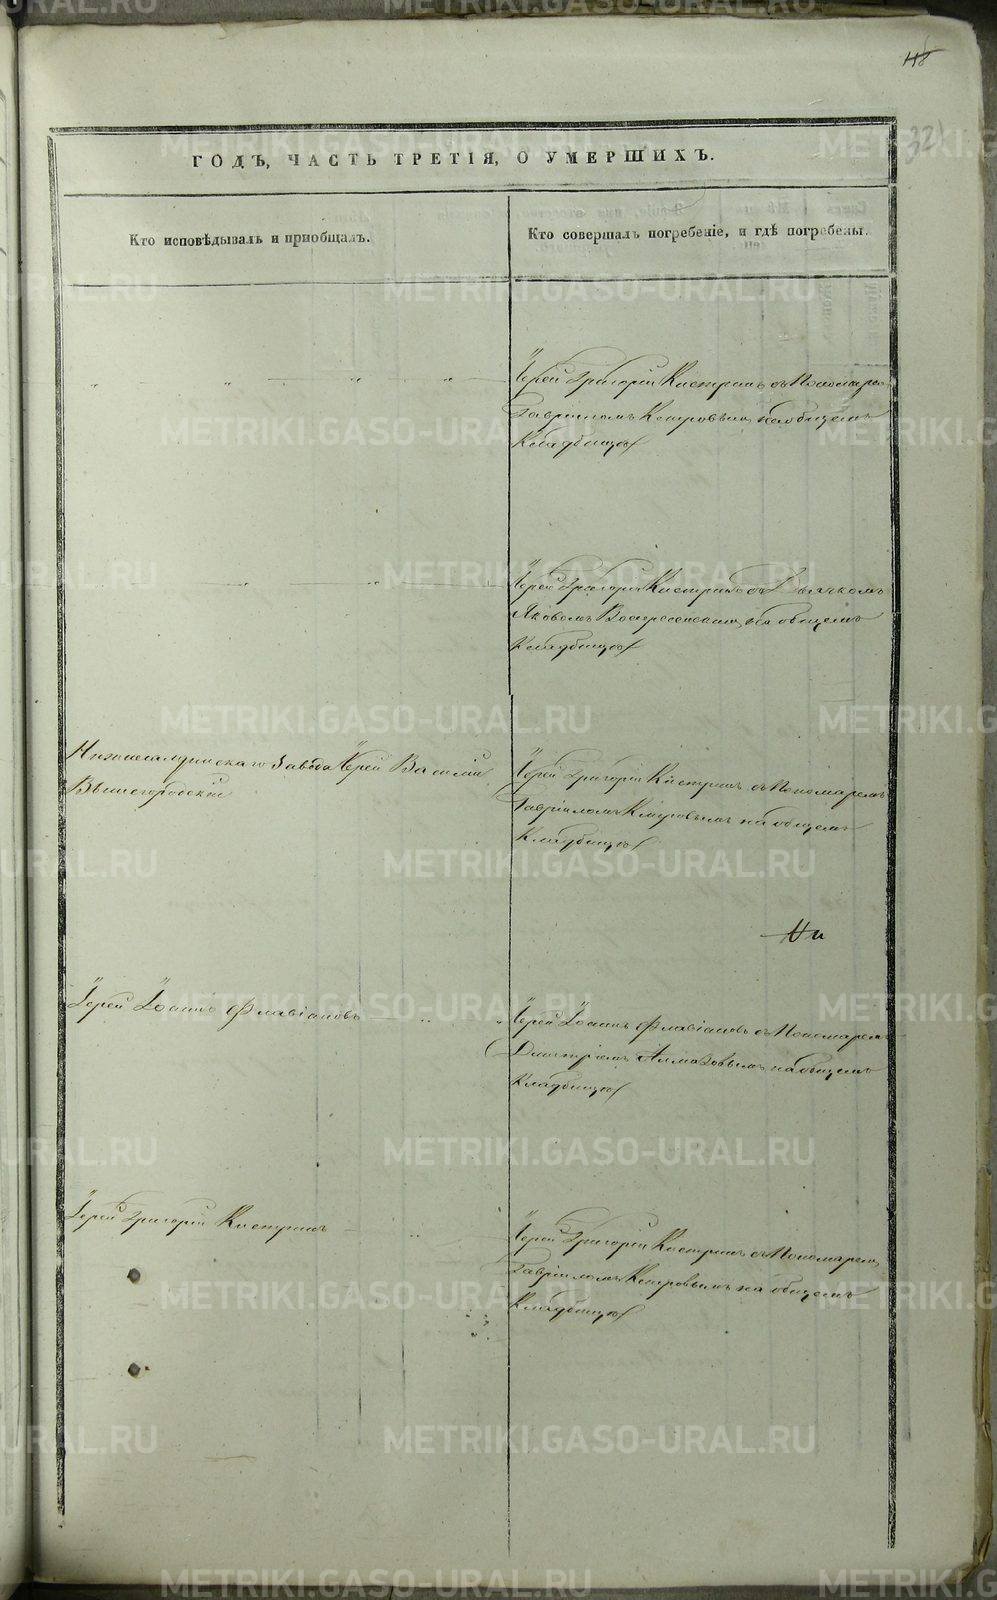 118
321
ГОДЪ, ЧАСТЬ ТРЕТІЯ, О УМЕРШИХЪ.
Кто исповѣдывалъ и пріобщалъ.
Кто совершалъ погребеніе, и гдѣ погребены.
Іерей Григорій Кистринъ съ Пономаремъ
Гавріиломъ на общемъ
Кладбищѣ
Іерей Григорій Кистринъ съ Дьячкомъ
Яковомъ Воскресенскимъ на общемъ
Кладбищѣ
Нижнесалдинскаго Завода Іерей Василій
Вышегородскій
Іерей Григорій Кистринъ съ Пономаремъ
Гавріиломъ на общемъ
Кладбищѣ
Іерей Іоаннъ Флавіановъ
Іерей Іоаннъ Флавіановъ съ Пономаремъ
Дмитріемъ Алмазовымъ на общемъ
Кладбищѣ
Іерей Григорій Кистринъ
Іерей Григорій Кистринъ съ Пономаремъ
Гавріиломъ на общемъ
Кладбищѣ
METRIKI.GASO-URAL.RU